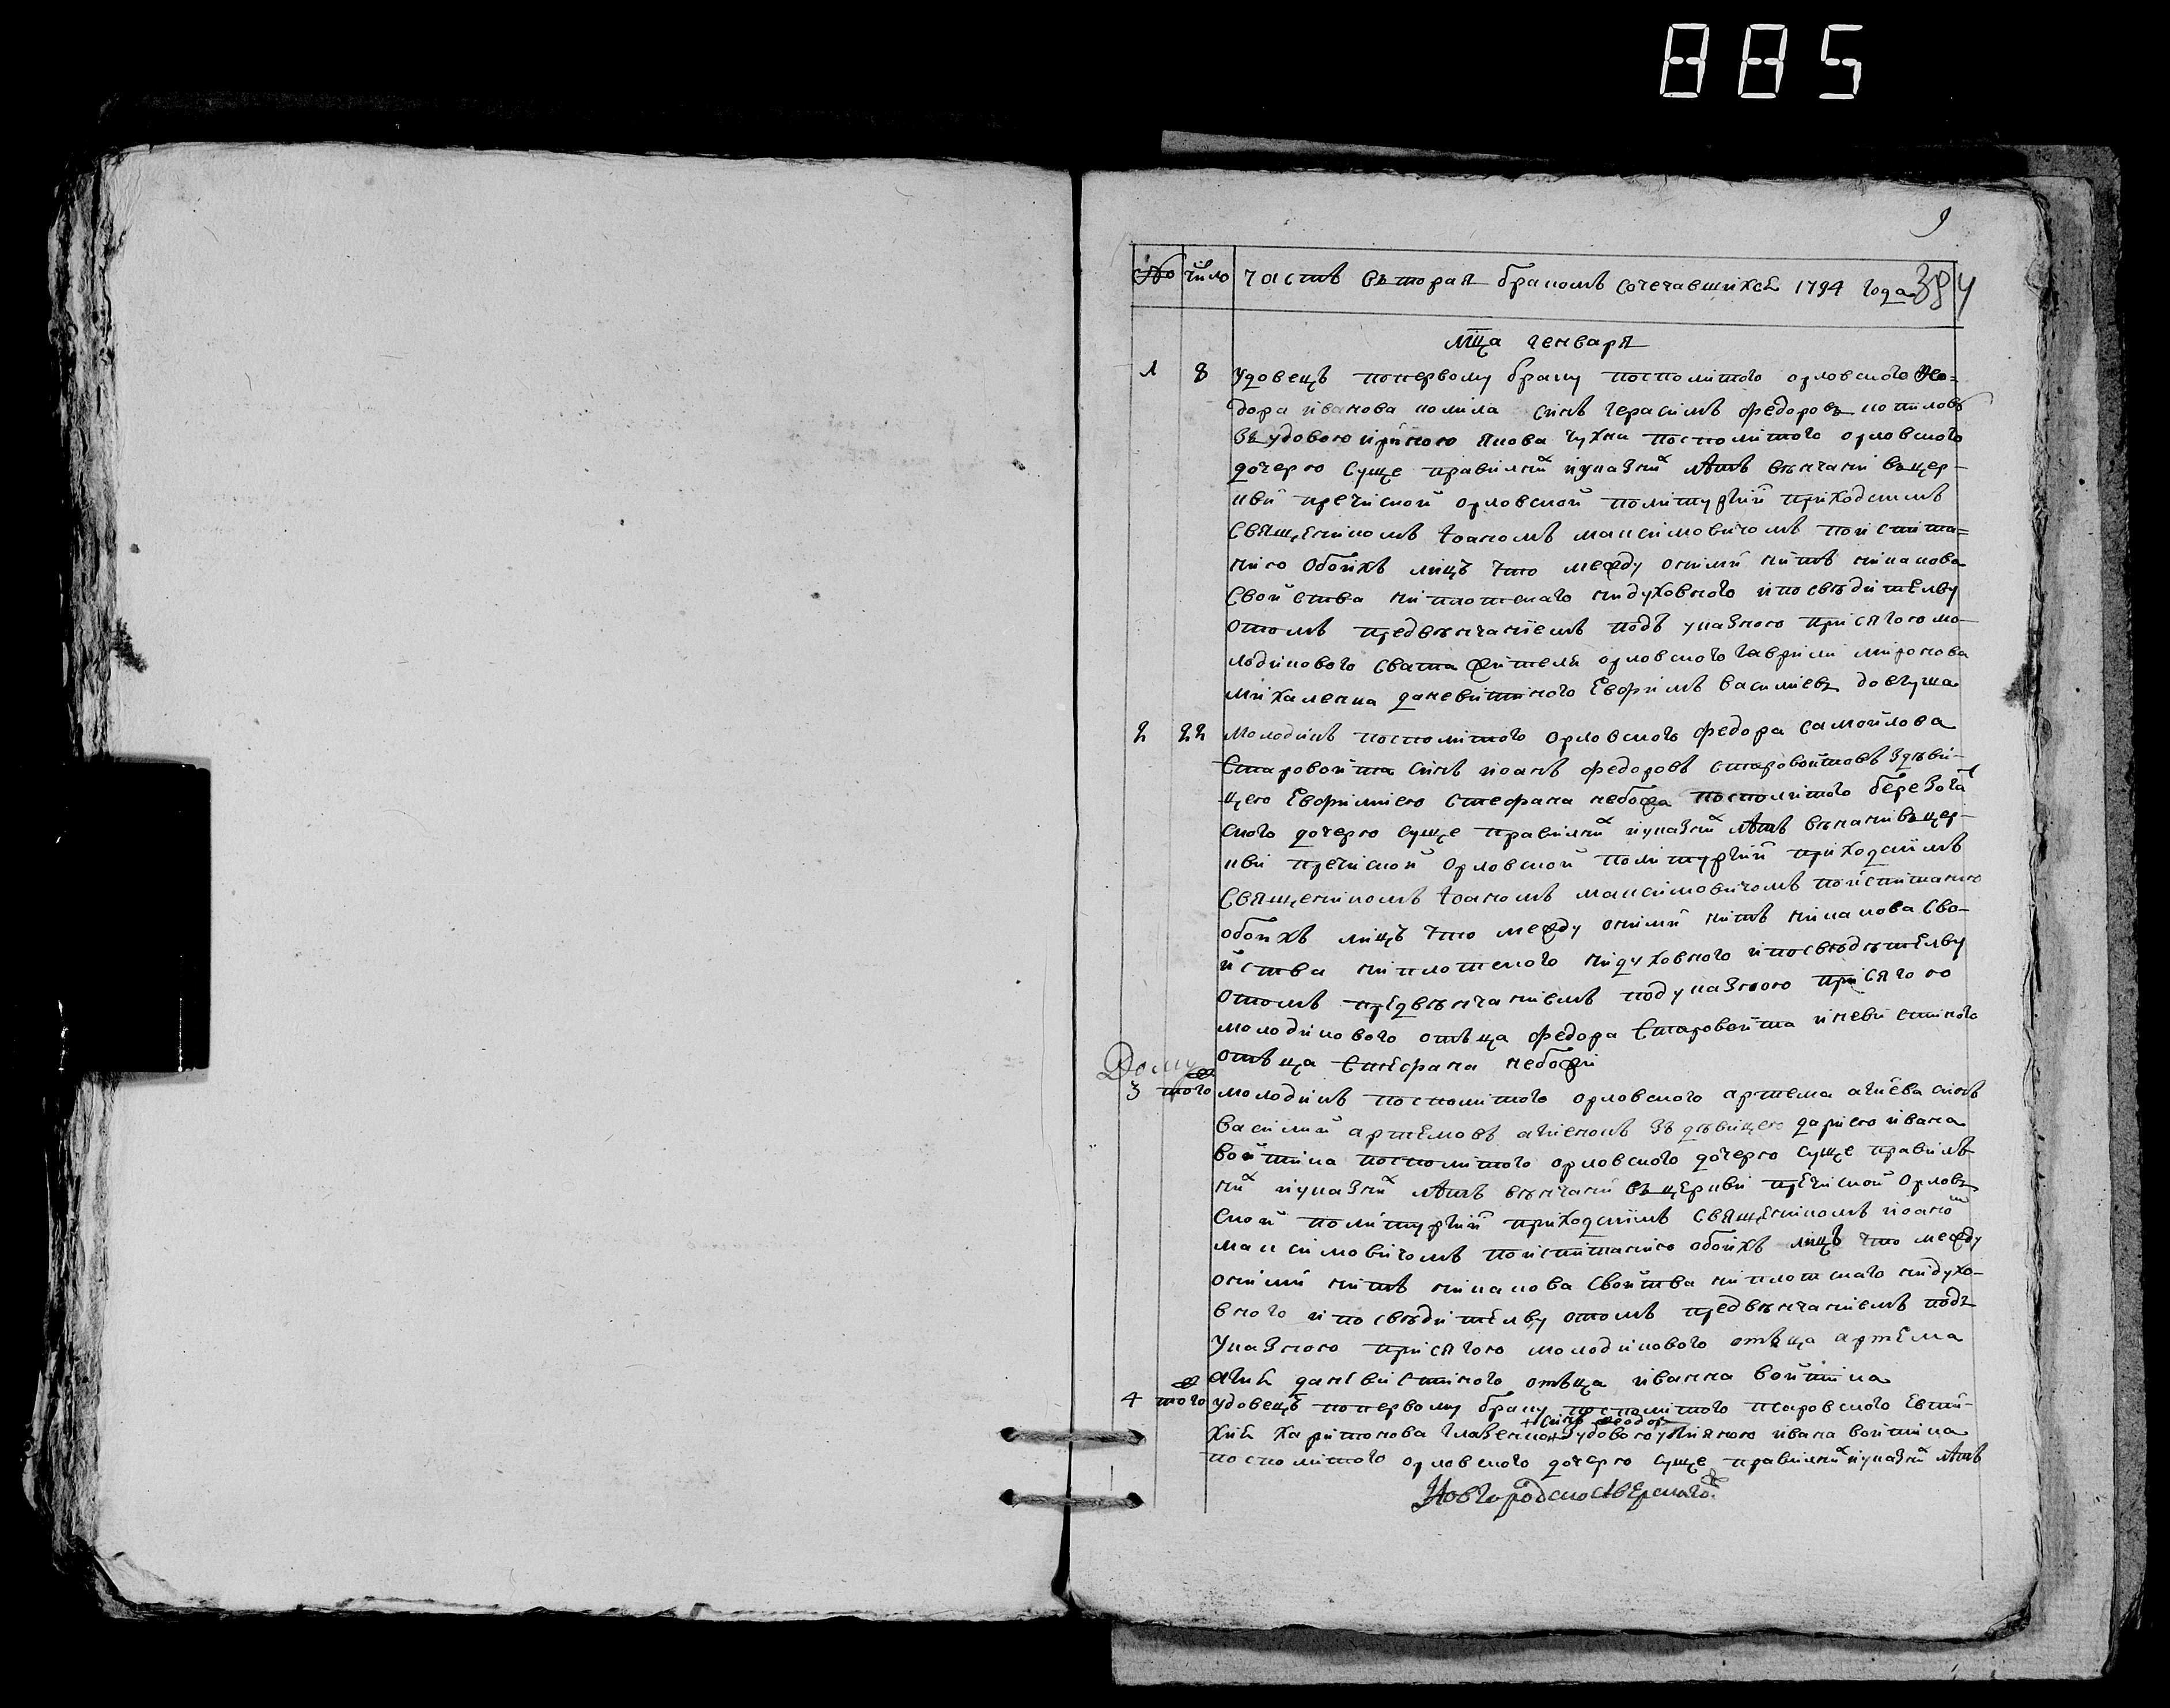 885
9
№ число часть въторая бракомъ сочетавшихся 1794 года 384
мца генваря
1 8 Удовецъ попервому браку посполитого орловского Фео-
дора иванова сынъ герасимъ федоровъ
зъ удовою якова посполитого орловского
дочерю суще правилнхъ иуказнх лѣтъ венчани въцер-
кви пречиской орловской политургии приходскимъ
Священикомъ Іоаномъ максимовичомъ поиспита-
нию обоихъ лицъ что между оними нитъ никакова
Свойства ниплотскаго нидуховного ипосвѣдителву
отомъ предвѣнчаниемъ подъ указною присягою мо-
лодикового свата жителя орловского гаврили миронова
михаленка
2 22 Молодикъ посполитого орловского федора самойлова
Старовойта синъ иоанъ федоровъ старовойтовъ здѣви-
цею Стефана небожа посполитого
ского дочерю суще правилнх иуказнх лѣтъ венчани въцер-
кви пречиской орловской политургии приходскимъ
Священикомъ Іоаномъ максимовичомъ поиспитанию
обоихъ лицъ что между оними нитъ никакова Сво-
йства ниплотского нидуховного ипосвѣдѣтелву
отомъ предвѣнчаниемъ подуказною присягою
молодикового отъца федора Старовойта иневистиного
отъца Стефана небожи
3 тогож молодикъ посполитого орловского артема агиева синъ
василий артемовъ агиенокъ зъ дѣвицею дариею ивана
войтика посполитого орловского дочерю суще правилъ
нх иуказнх лѣтъ венчани въ церкви пречиской Орлов
ской политургии приходскимъ Священикомъ иоаном
максимовичомъ поиспитанию обоихъ лицъ что между
оними нитъ никакова Свойтва ниплотскаго нидухо-
вного ипосвѣдителву отомъ предвѣнчаниемъ подъ
Указною присягою молодикового отъца артема
агия даневистиного отъца иванна войтика
4 тогож удовецъ попервому браку посполитого псаровского Евти-
+ синъ феодор
хия харитонова + зъудовою улияною ивана войтика
посполитого орловского дочерю суще правилнх иуказнх лѣтъ
Новгородскосѣверского